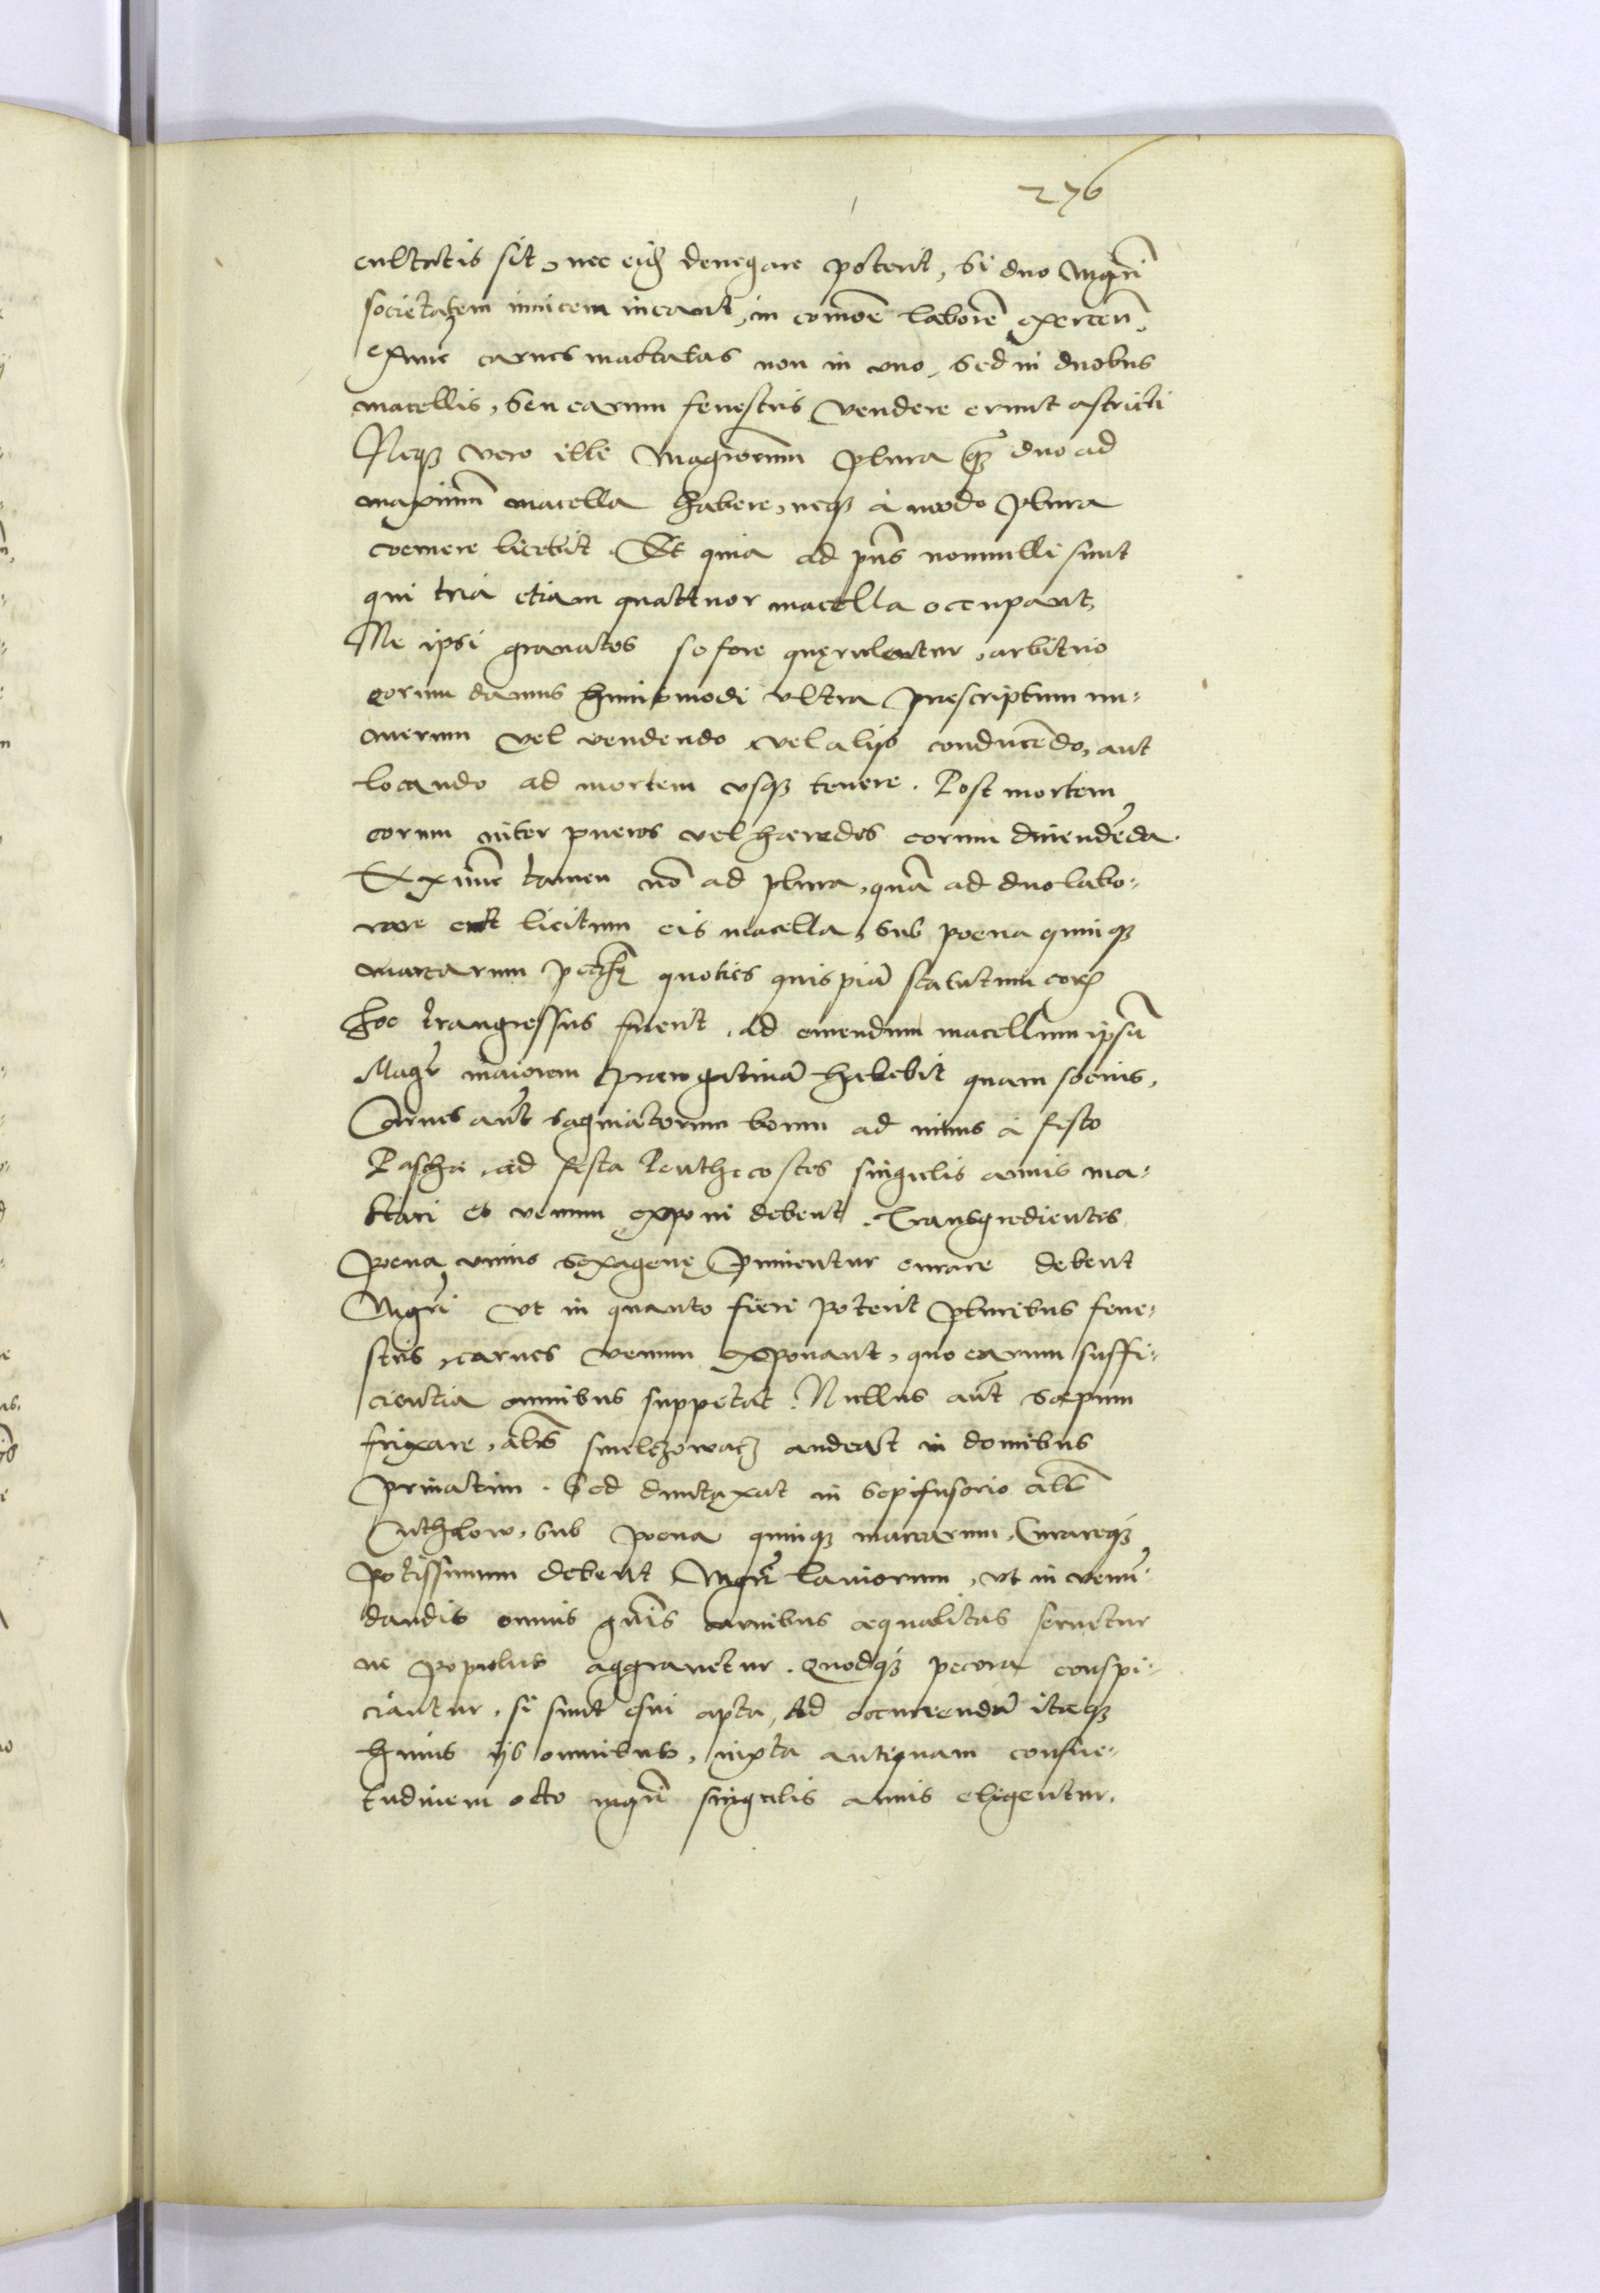 276
cultatis sit, nec eidē denegare poterit, Si duo Mgr̄i
societatem inuicem ineant, in com̄oē laborē exercen̄,
extunc carnes mactatas non in vno, sed in duobus
macellis, seu earum fenestris vendere erunt astricti
Neqȝ vero illi Magistrorum plura qȝ̄ duo ad
maximū macella habere, neqȝ à modo plura
coemere licebit. Et quia ad pn̄s nonnulli sunt
qui tria etiam quattuor macella occupant,
Ne ipsi grauatos se fore quęrulentur, arbitrio
eorum damus huiusmodi vltra prescriptum nu-
merum vel vendendo, vel alijs conducēdo, aut
locando ad mortem vsqȝ tenere. Post mortem
eorum inter pueros vel haeredes eorum diuendēda
Ex nūc tamen nō ad plura, quā ad duo labo-
rare erit licitum eis macella, sub poena quinqȝ
marcarum quoties quispiā statutum
hoc trangressus fuerit. Ad emendum macellum ipsū
Magr̄ maiorem praerogatiuā habebit quam socius,
Carnes aūt saginatorum boum ad minus à festo
Paschæ, ad festa Penthecostes singulis annis ma-
ctari et venum exponi debent. Transgredientes
poena vnius sexagenę punientur curare debent
Mgr̄i vt in quanto fieri poterit pluribus fene-
stris, carnes venum exponant, quo earum suffi-
cientia omnibus suppetat. Nullus aūt saepum
frixare, al̄s smelczowacz audeat in domibus
priuatim. Sed duntaxat in sepifusorio al̄s
Cuthlow, sub poena quinqȝ marcarum, Curareqȝ
potissimum debent Mgr̄i laniorum, vt in venū-
dandis omnis gn̄is carnibus aequalitas seruetur
ne populus aggrauetur. Quodqȝ pecora conspi-
ciantur, si sint esui apta, Ad occurrendū itaqȝ
huius ijs omnibus, iuxta antiquam consue-
tudinem octo mgr̄i singulis annis eligentur.